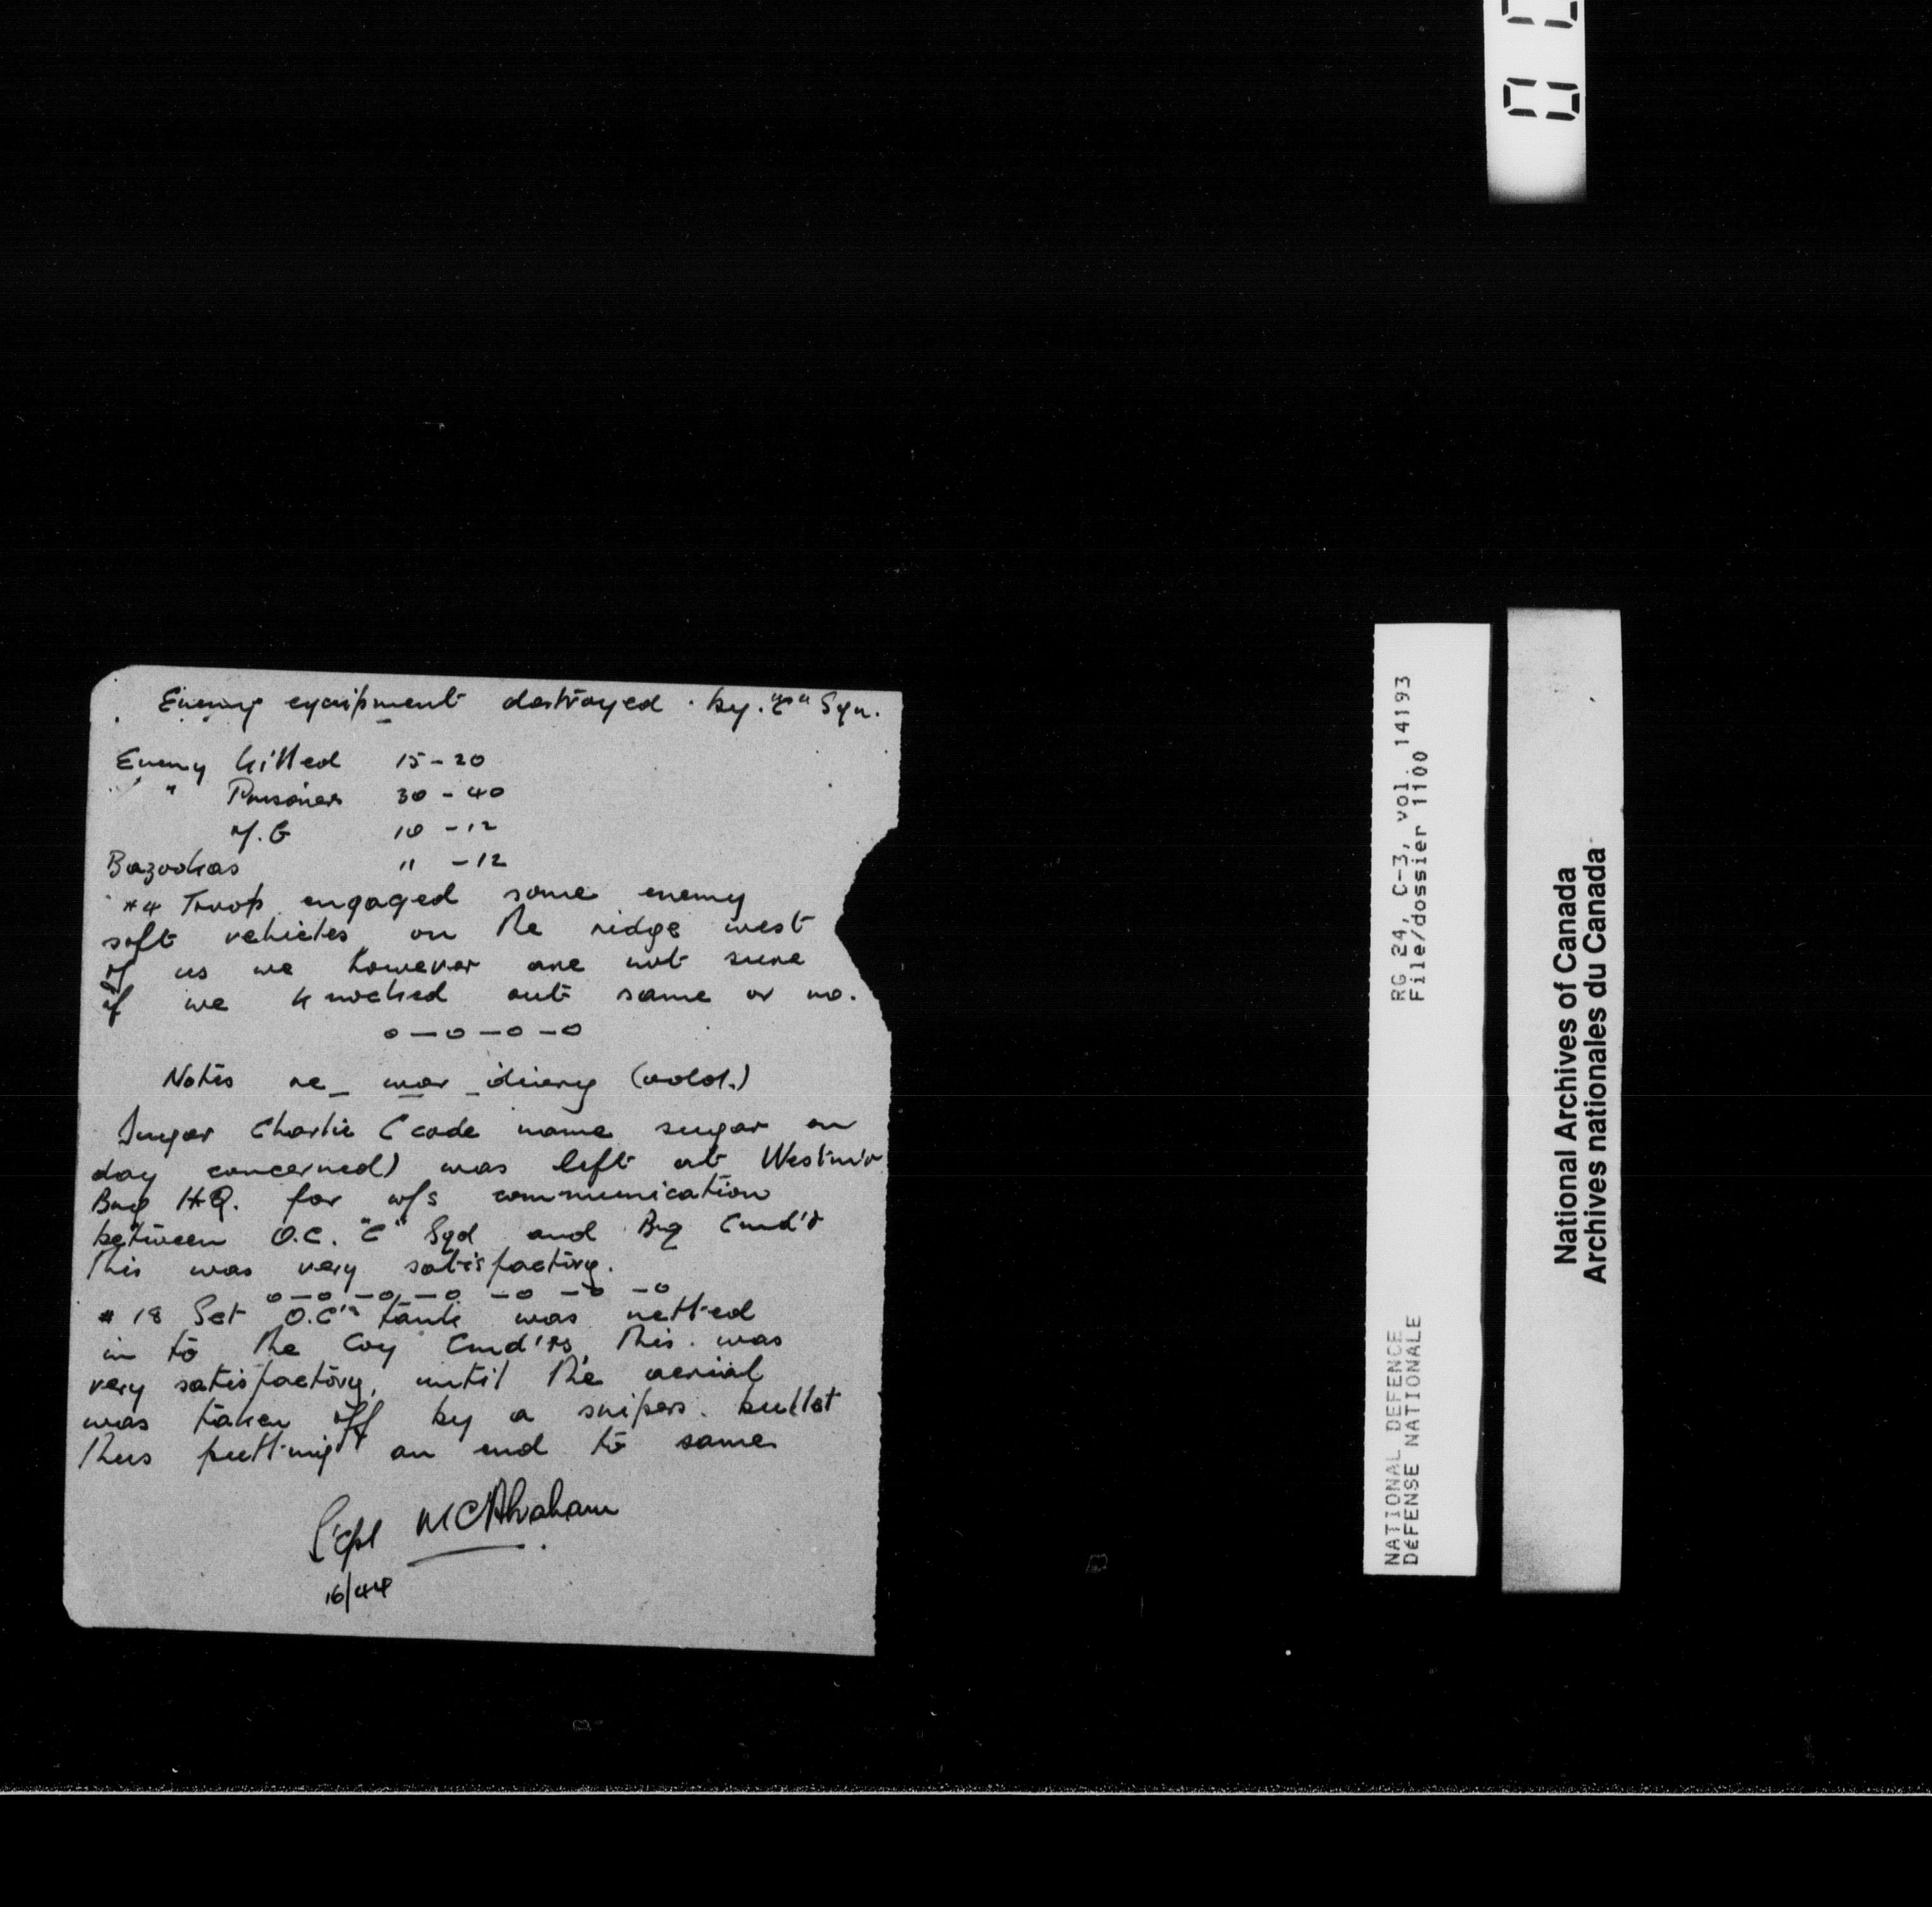 Enemy equipment destroyed by "C" Sqn.
Enemy killed 15-20
" Prisoners 30-40
M.G 10-12
Bazookas " -12
#4 Troop engaged some enemy
soft vehicles on the ridge west
of us we however are not sure
if we knocked out same or no.
o-o-o-o
Notes re war diary (add.)
Sugar Charlie (code name sugar on
day concerned) was left at Westmin
Brig H.Q. for w/s communication
between O.C. "C" Sqd and Brig Cmd'r
this was very satisfactory.
o-o-o-o-o-o-o
#18 Set O.C's tank was netted
in to the Coy Cmd'rs, this was
very satisfactory, until the aerial
was taken off by a snipers bullet
thus putting an end to same
L/Cpl McAbraham
16/44
RG 24, C-3, vol. 14193
File/dossier 1100
NATIONAL DEFENCE
DéFENSE NATIONALE
National Archives of Canada
Archives nationales du Canada